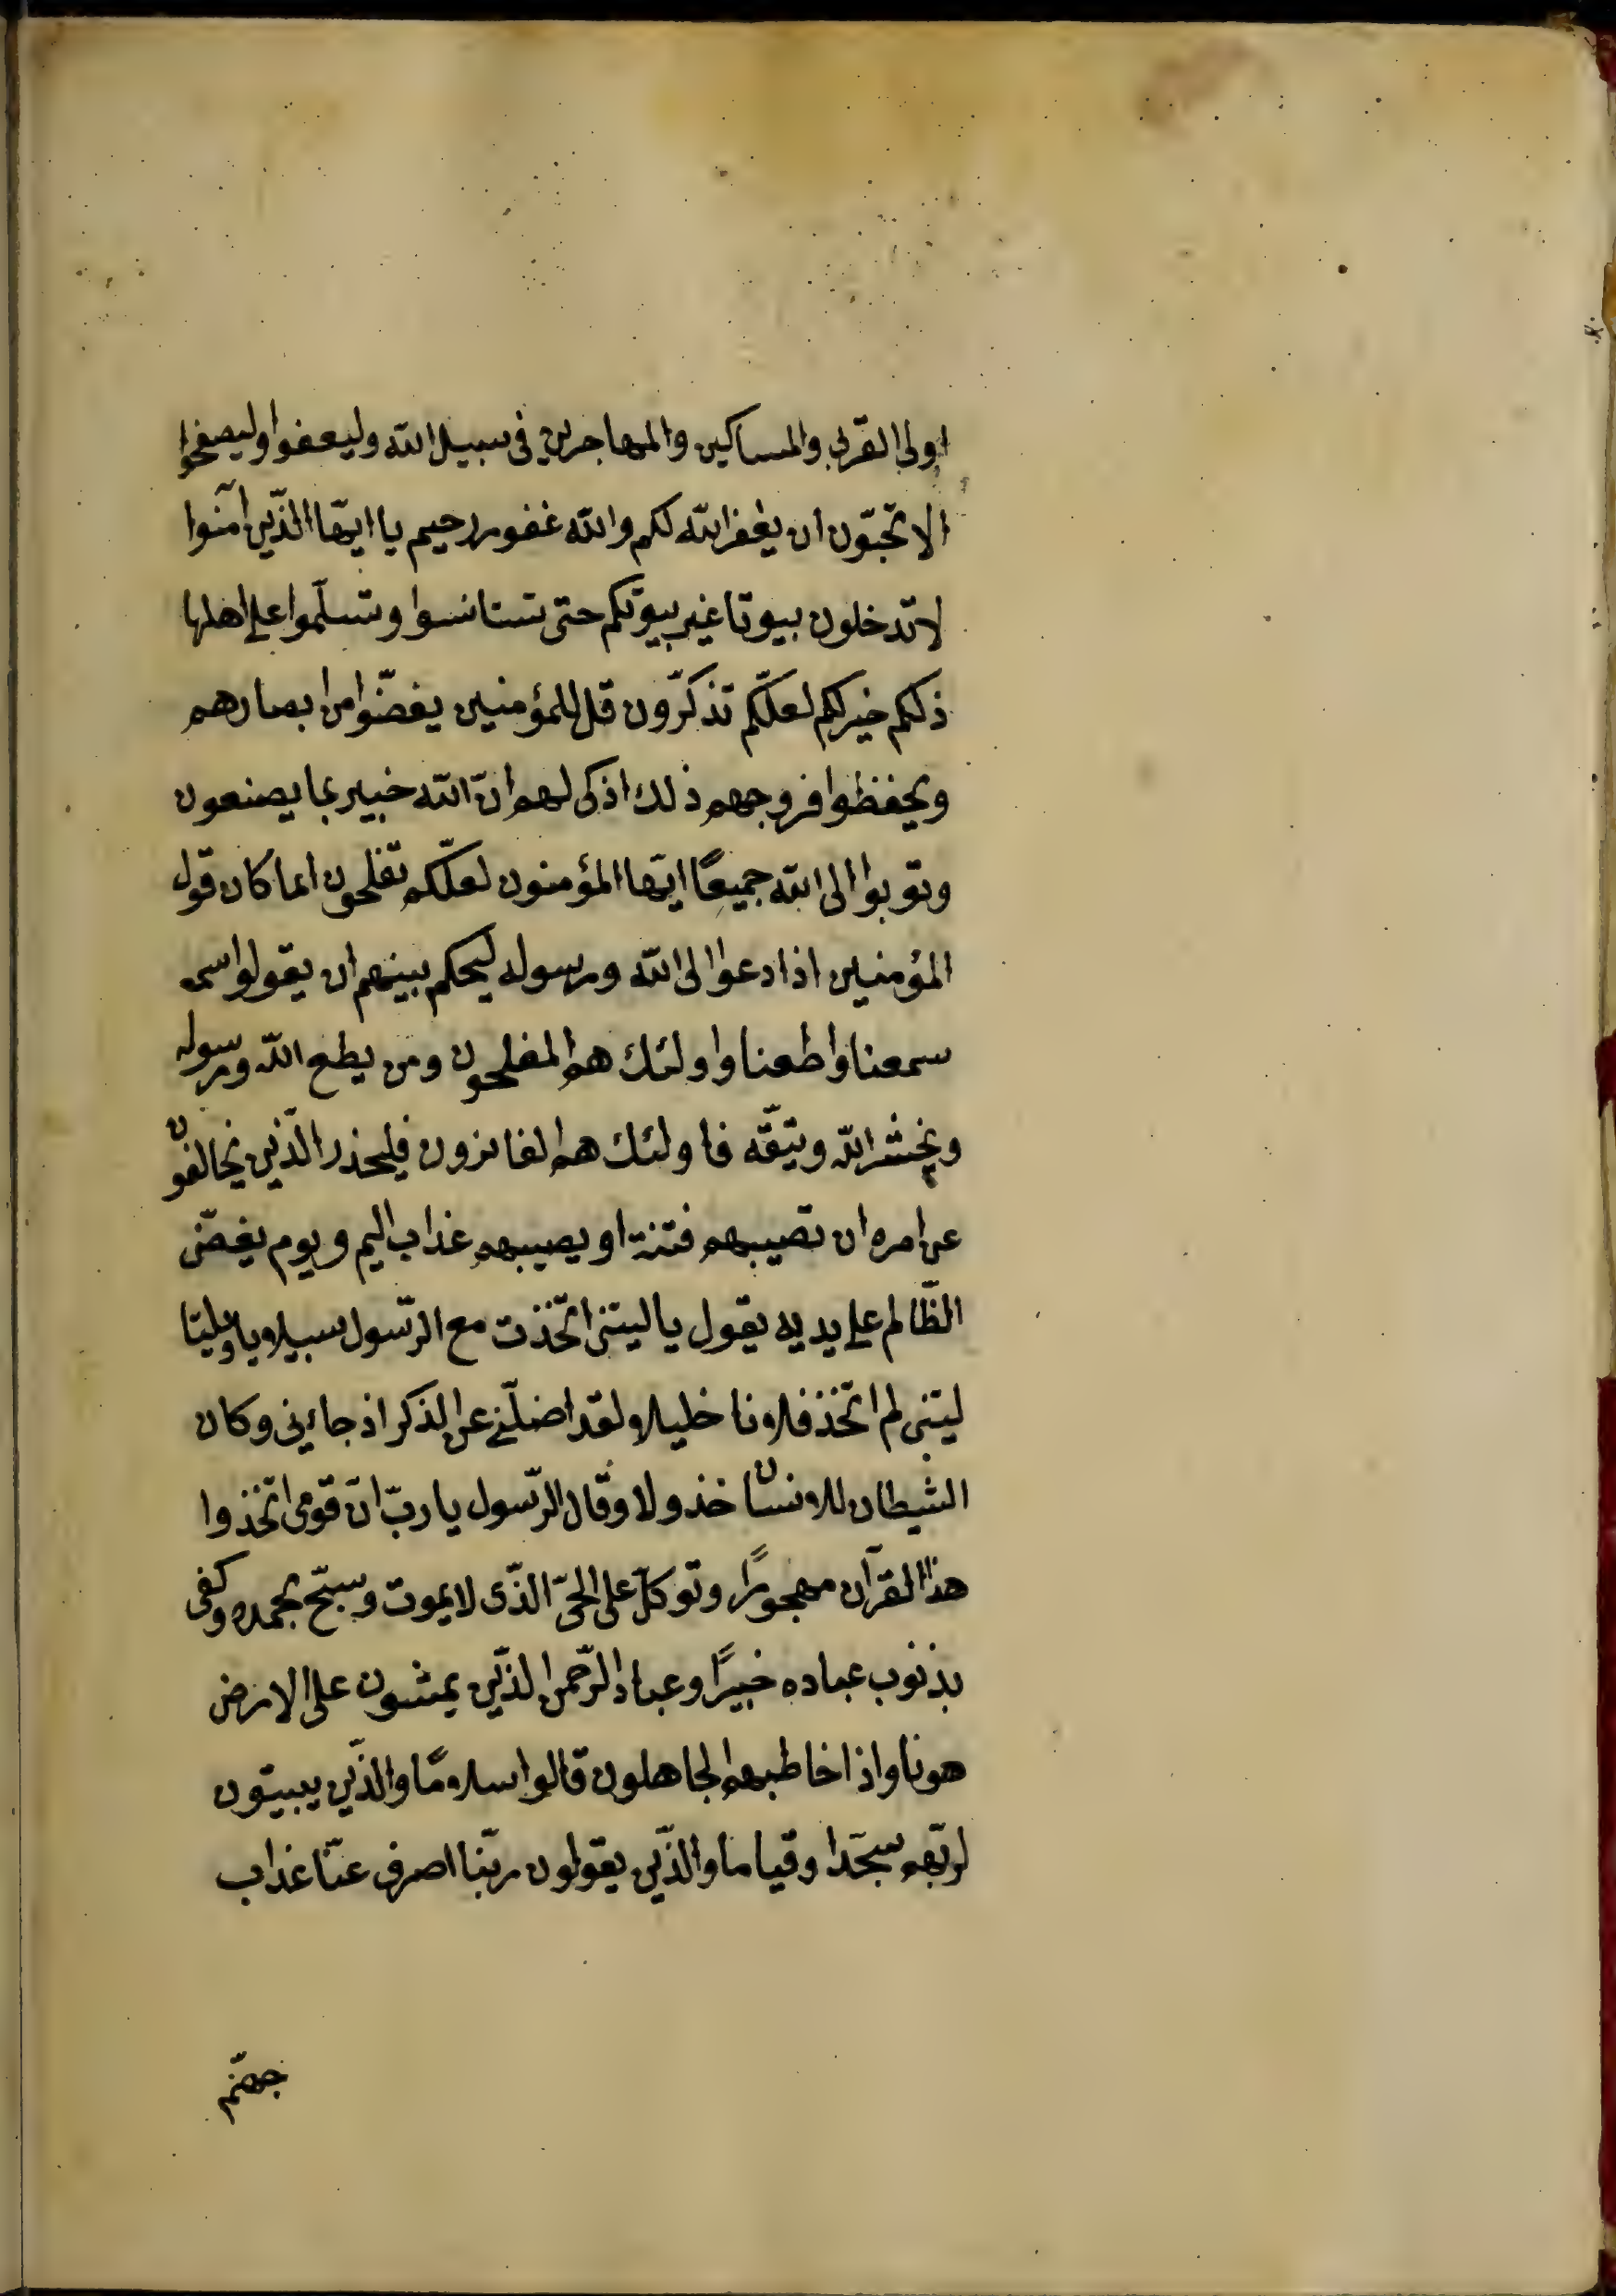 اولى القربى والمساكين والمهاجرين فى سبيل الله وليعفوا وليصفحوا
الا تحبّون ان يغفر الله لكم والله غفور رحيم يا ايّها الذّين آمنوا
لا تدخلون بيوتا غير بيوتكم حتى تستانسوا وتسلّموا على اهلها
ذلكم خير لكم لعلّكم تذكرّون قل للمؤمنين يغضّوا من ابصارهم
ويحفظوا فروجهم ذلك اذكى لهم انّ الله خبير بما يصنعون
وتوبوا الى الله جميعًا ايّها المؤمنون لعلّكم تفلحون انما كان قول
المؤمنين اذا دعوا الى الله ورسوله ليحكم بينهم ان يقولوا سمـ
سمعنا واطعنا واولئك هم المفلحون ومن يطع الله ورسوله
ويخش الله ويتّقه فاولئك هم الفائزون فليحذر الّذين يخالفون
عن امره ان تصيبهم فتنة او يصيبهم عذاب اليم ويوم يغضّ
الظّالم على يديه يقول يا ليتنى اتّخذت مع الرّسول سبيلا يا ويلتا
ليتنى لم اتّخذ فلانا خليلا ولقد اضلّنى عن الذكر اذ جائنى وكان
الشيطان للانسان خذولا وقال الرّسول يا ربّ انّ قومى اتّخذوا
هذا القرآن مهجورًا وتوكلّ على الحىّ الذّى لا يموت وسبّح بحمده وكفى
بذنوب عباده خبيرًا وعباد الرّحمن الذّين يمشون على الارض
هونا واذا خاطبهم الجاهلون قالوا سلامًا والذّين يبيتون
لربّهم سجّدا وقياما والذّين يقولون ربّنا اصرف عنّا عذاب
جهنّم